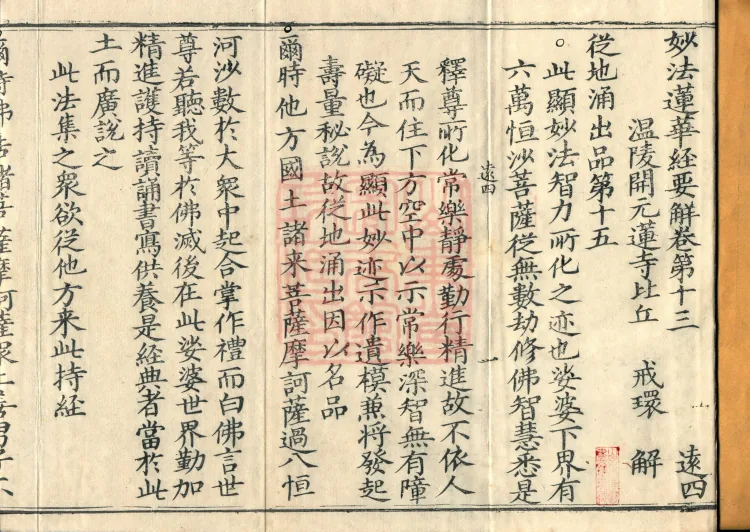 妙法蓮華経要解卷第十三
遠四
温陵開元蓮寺比丘 戒環 解
従地涌出品第十五
。此顯妙法智力所化之迹也娑婆下界有
六萬恒沙菩薩従無數劫修佛智慧悉是
遠四
一
釋尊所化常樂靜處勤行精進故不依人
天而住下方空中以示常樂深智無有障
礙也今為顯此妙迹示作遺模兼将發起
壽量秘說故従地涌出因以名品
。爾時他方國土諸来菩薩摩訶薩過八恒
河沙數於大衆中起合掌作禮而白佛言世
尊若聽我等於佛滅後在此娑婆世界勤加
精進護持讀誦書寫供養是経典者當於此
土而廣說之
此法集之衆欲従他方来此持経
爾時佛告諸菩薩摩訶薩衆止善男子不